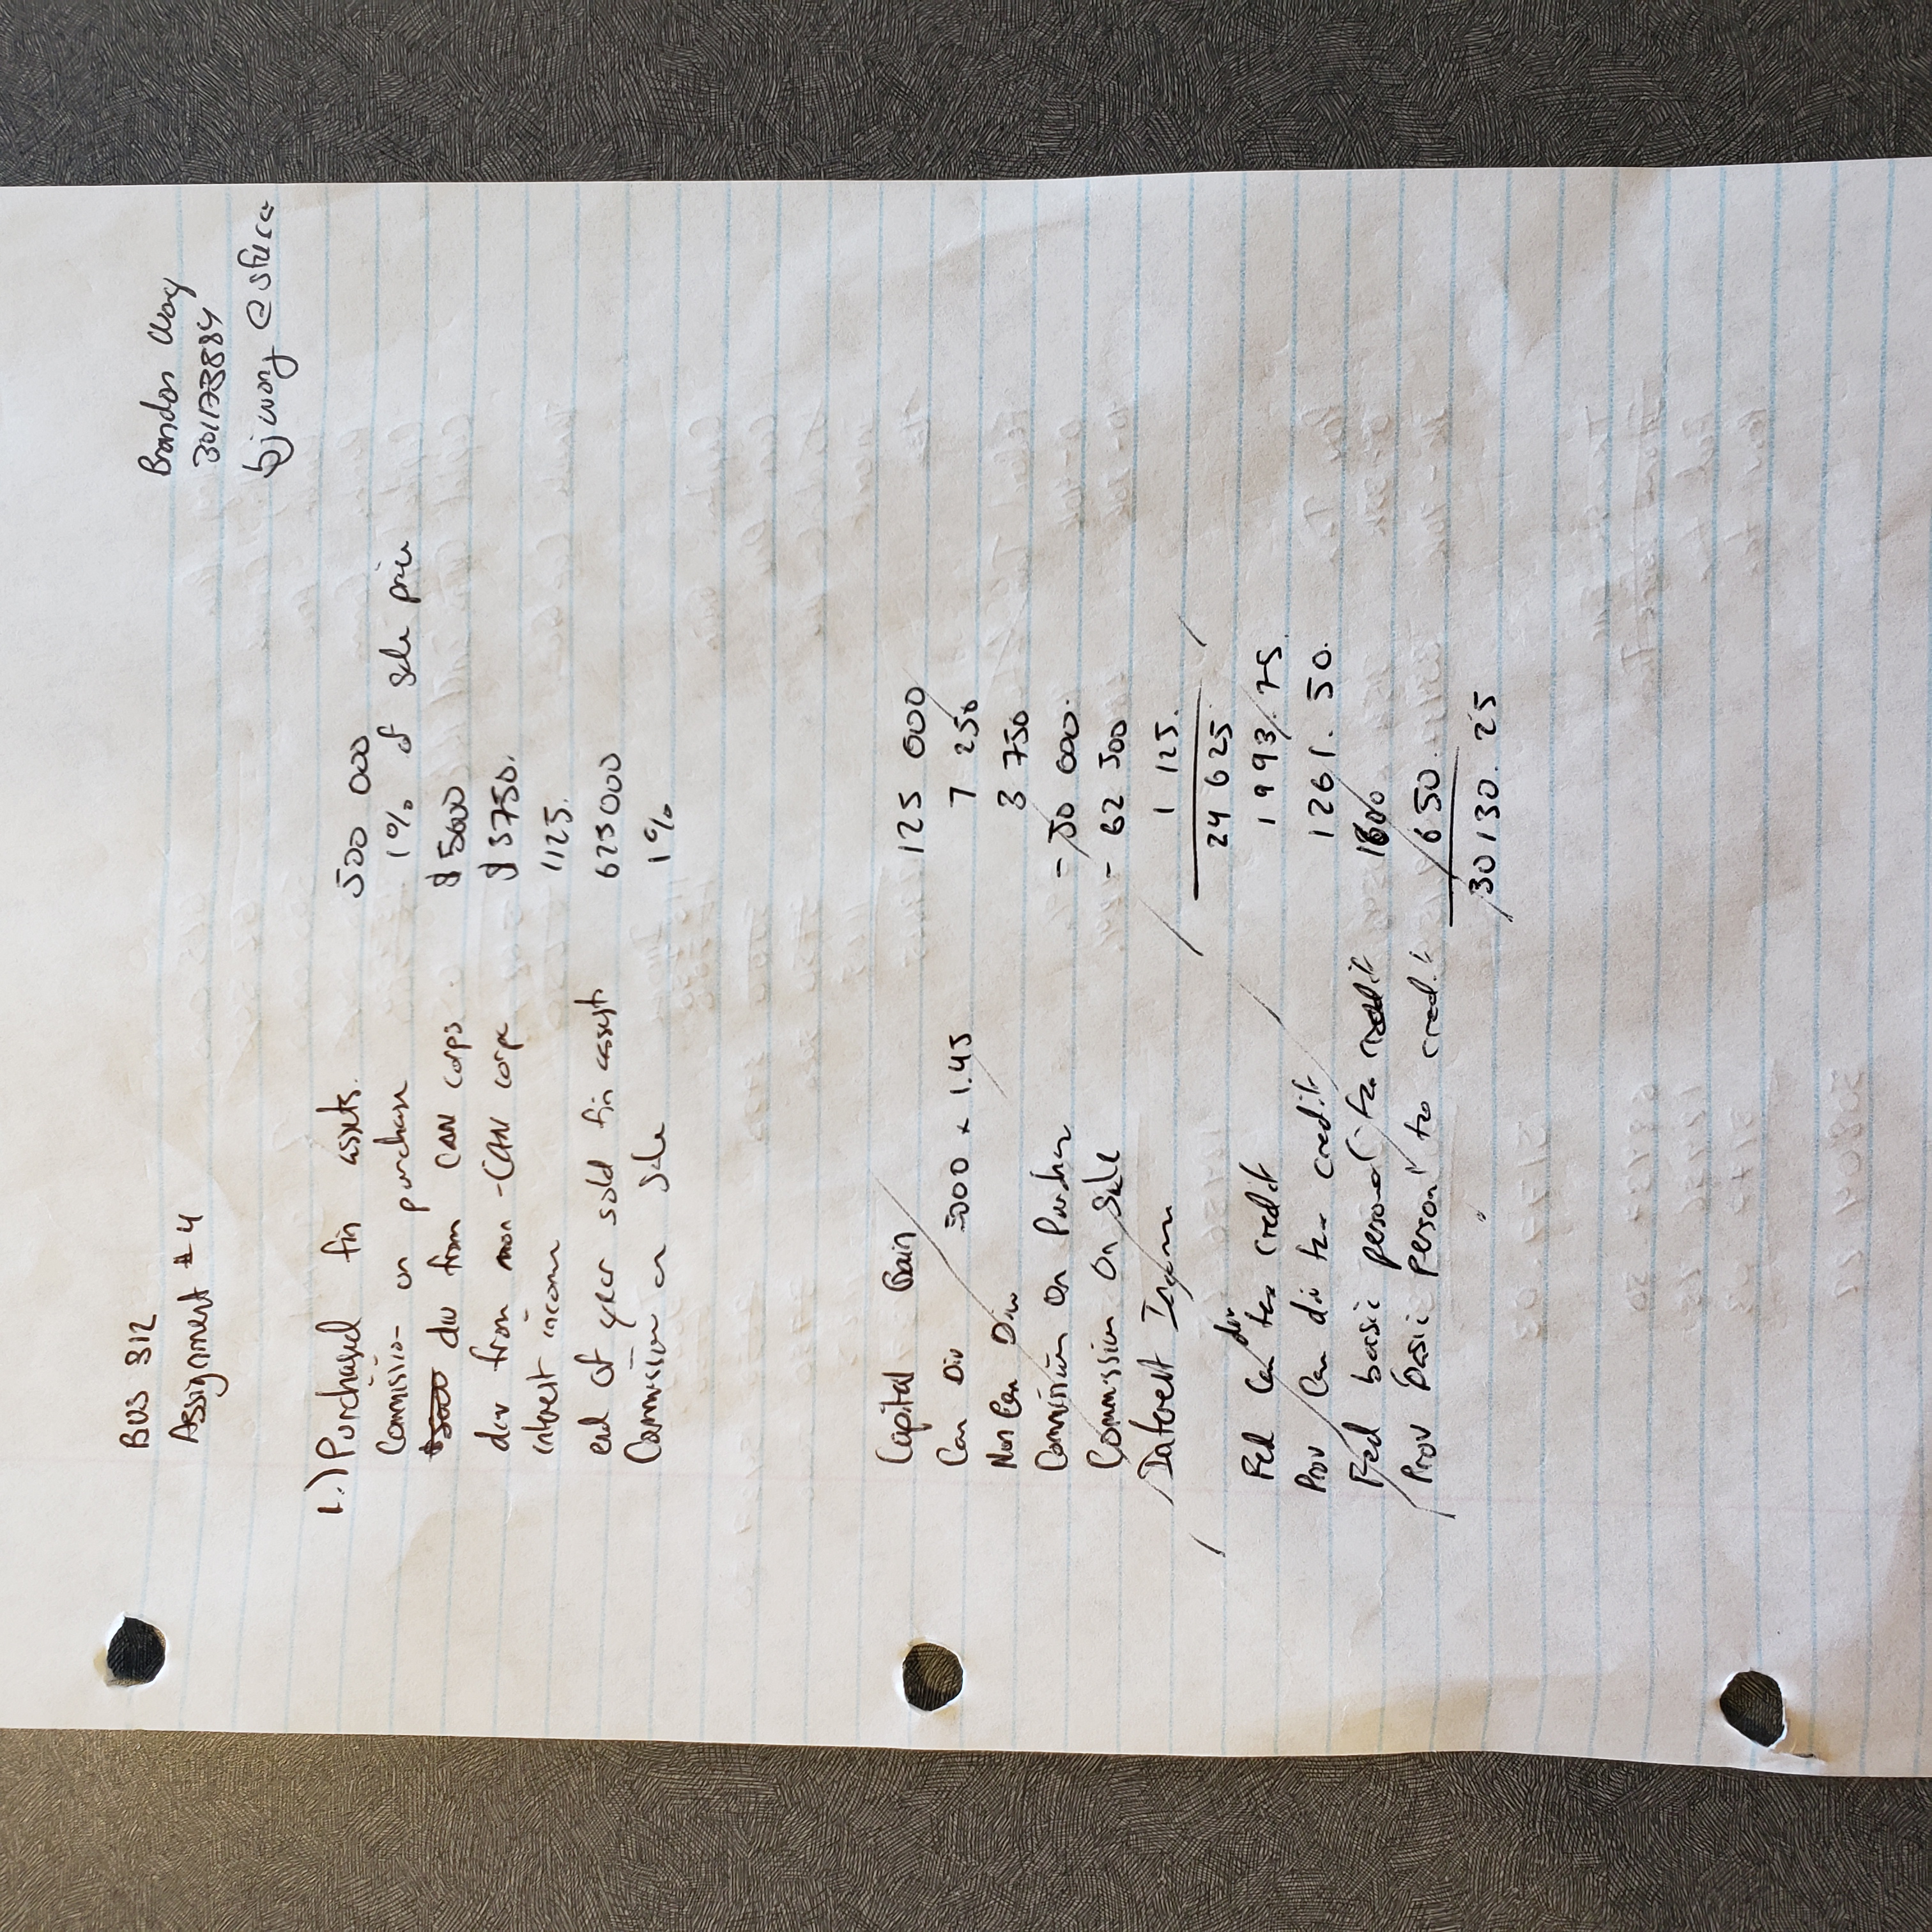 BUS 312
Assignment #4
Brandon Wong
301173884
bjwong @sfu.ca
1.) Purchased fin assets. 500 000
Commission on purchase 1% of sale price
$5000 div from CAN corps $5000
div from non-CAN corps $3750.
interest income 1125.
end of year sold fin assets 625000
Commission on sale 1%
Capital Gain 125 000
Can Div 5000 x 1.45 7 250
Non Can Div 3 750
Commission On Purchase - 50 000.
Commission On Sale - 62 500
Interest Income 1 125.
24 625
Fed Can div tax credit 1993.75
Prov Can div tax credit 1261.50.
Fed basic personal tax credit 1800
Prov basic personal tax credit 650.
30130.25